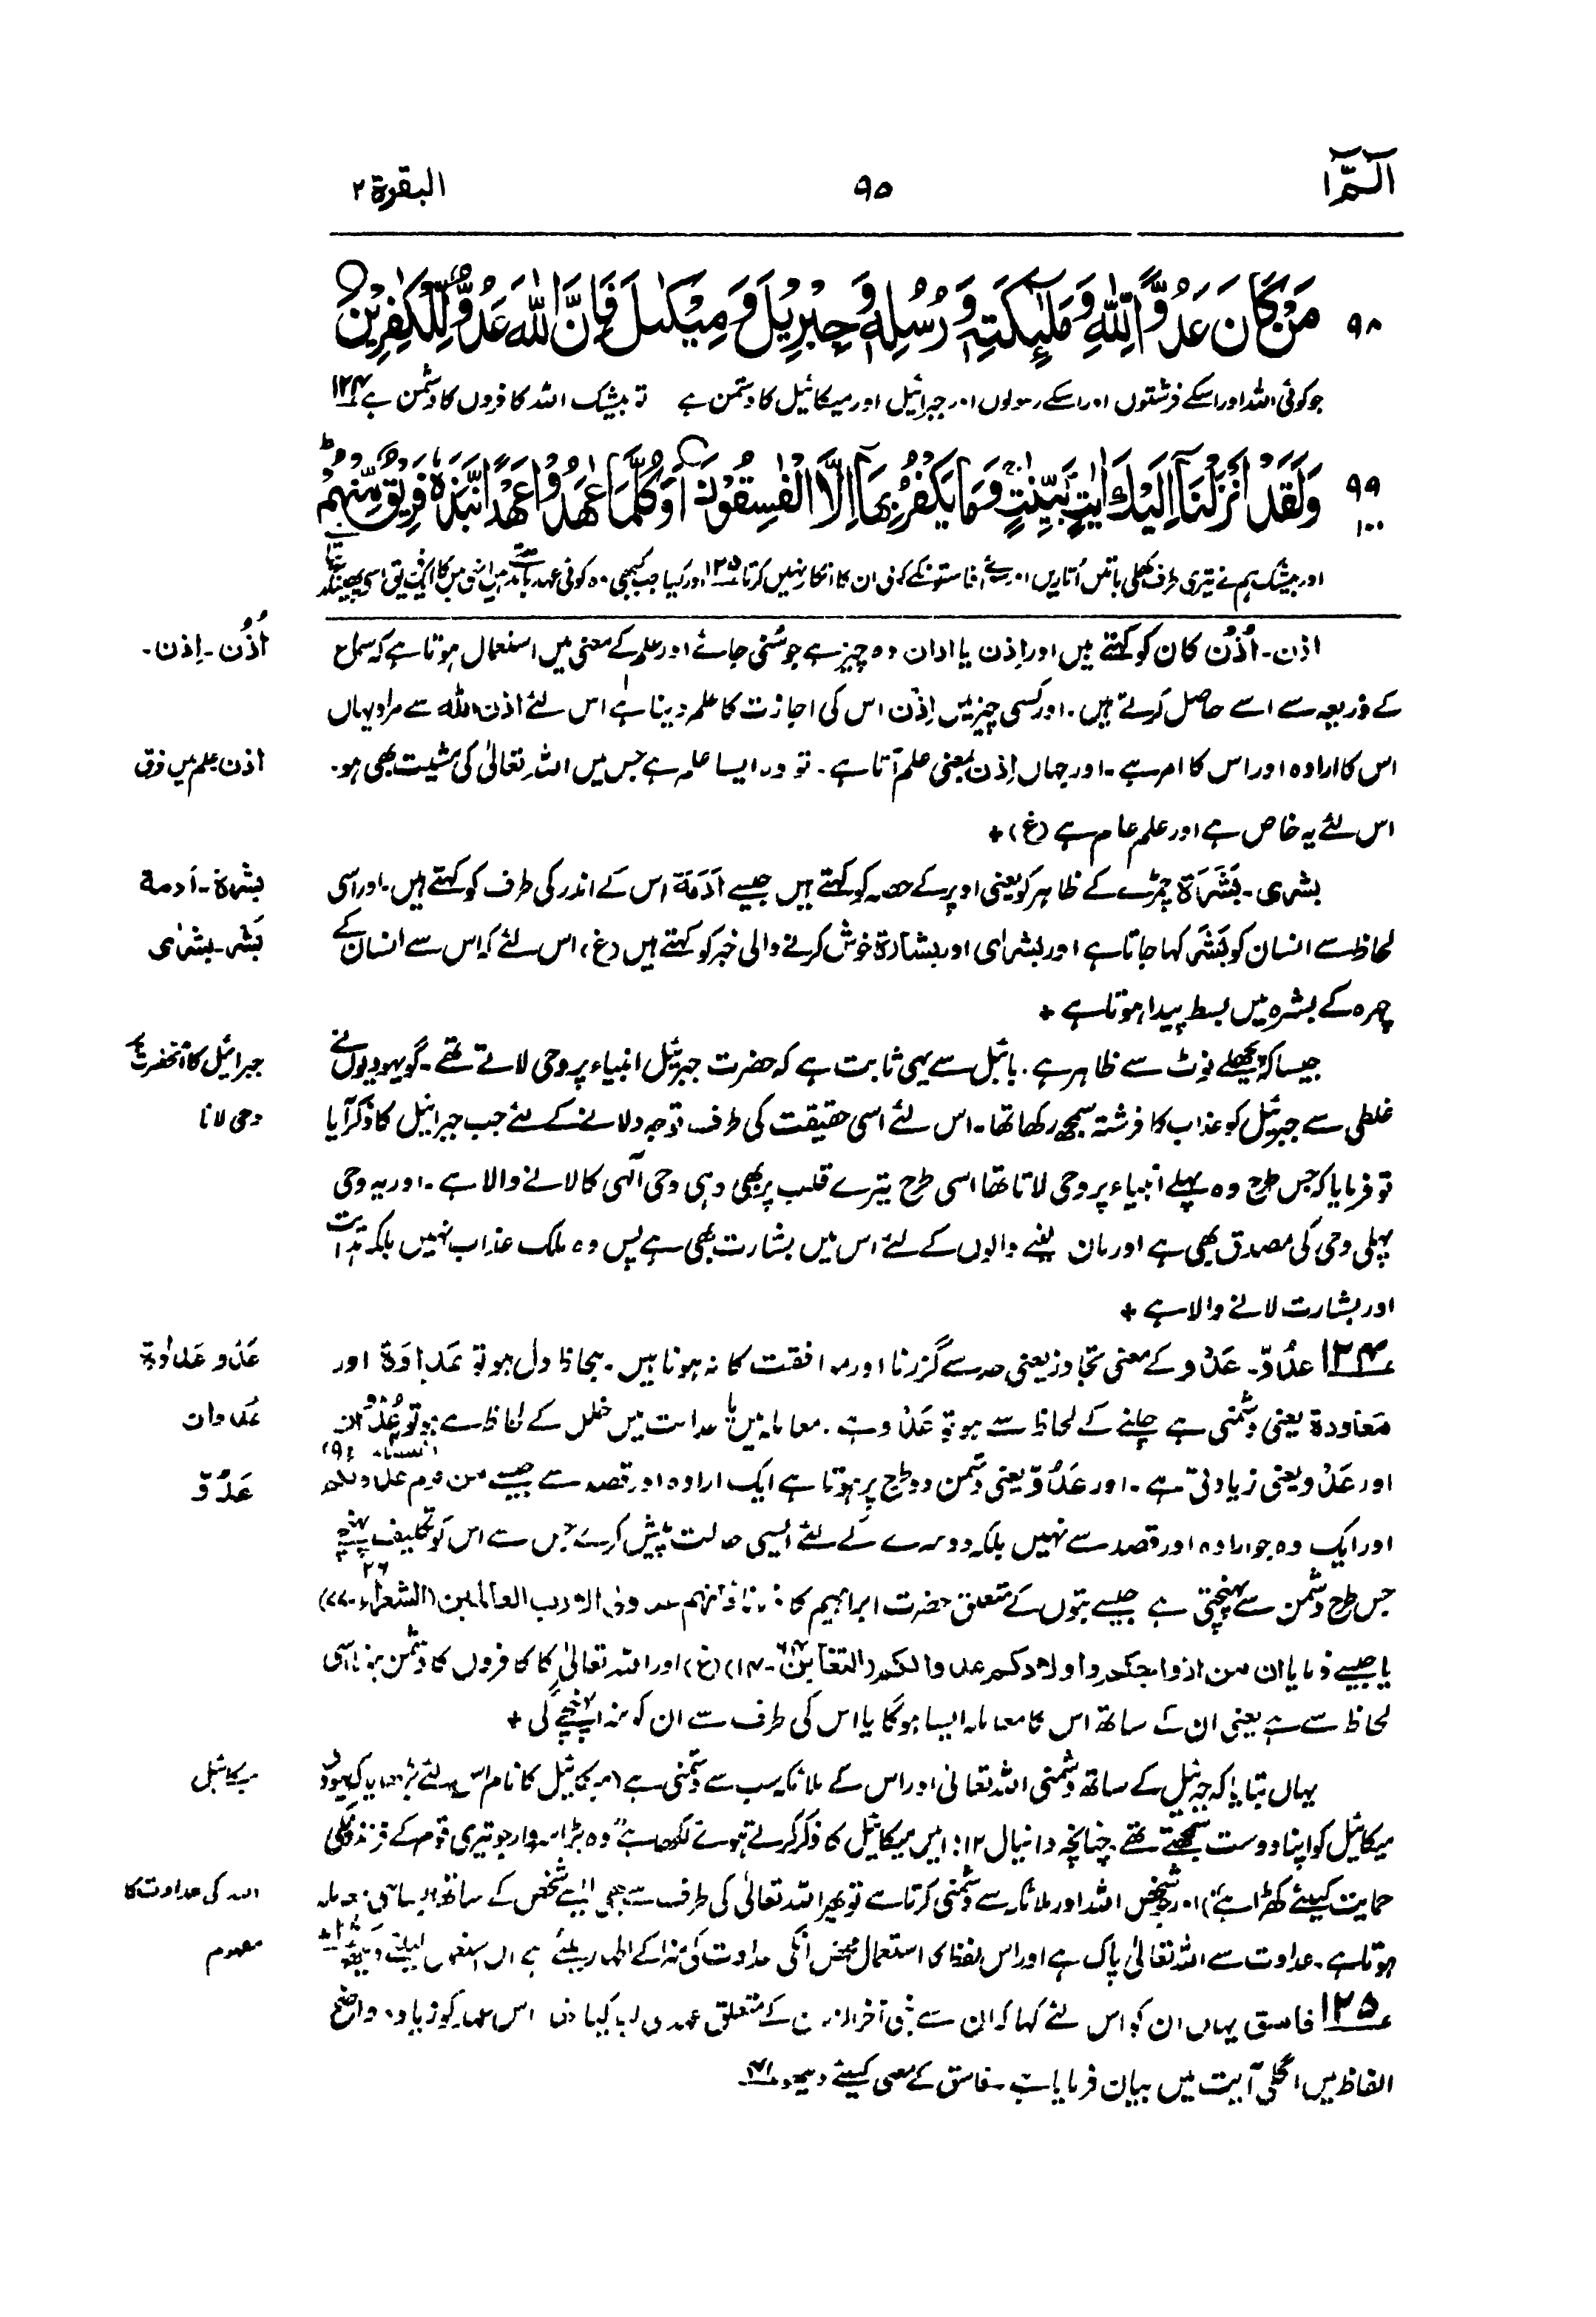 الٓمّٓ ۱
۹۵
البقرة ۲
۹۸
مَنْ كَانَ عَدُوًّا لِّلّٰهِ وَمَلٰٓئِكَتِهٖ وَرُسُلِهٖ وَجِبْرِيْلَ وَمِيْكٰىلَ فَاِنَّ اللّٰهَ عَدُوٌّ لِّلْكٰفِرِيْنَ ○
جو کوئی اللہ اور اسکے فرشتوں اور اسکے رسولوں اور جبرائیل اور میکائیل کا دشمن ہے تو بیشک اللہ کافروں کا دشمن ہے ۱۲۴
۹۹
۱۰۰
وَلَقَدْ اَنْزَلْنَآ اِلَيْكَ اٰيٰتٍۭ بَيِّنٰتٍ ۚ وَمَا يَكْفُرُ بِهَآ اِلَّا الْفٰسِقُوْنَ ○ اَوَكُلَّمَا عٰهَدُوْا عَهْدًا نَّبَذَهٗ فَرِيْقٌ مِّنْهُمْ ؕ
اور بیشک ہم نے تیری طرف کھلی باتیں اُتاریں اور سوائے فاسقونکے کوئی ان کا انکار نہیں کرتا ۱۲۵ اور کیا جب کبھی وہ کوئی عہد ان میں کا ایک فریق اسی پھینکد
اُذُن ۔ اِذن ۔
اذن ۔ اُذُن کان کو کہتے ہیں اور اِذن یا اذان وہ چیز ہے جو سُنی جائے اور علم کے معنی میں استعمال ہوتا ہے کہ سمع
کے ذریعہ سے اسے حاصل کرتے ہیں ۔ اور کسی چیز میں اِذْن اس کی اجازت کا علم دینا ہے اس لئے اذن اللہ سے مراد یہاں
اذن علم میں فرق
اس کا ارادہ اور اس کا امر ہے ۔ اور جہاں اِذن بمعنی علم آتا ہے ۔ تو وہ ایسا علم ہے جس میں اللہ تعالیٰ کی مشیت بھی ہو ۔
اس لئے یہ خاص ہے اور علم عام ہے (غ) +
بشرة ۔ أدمة
بشرٰی ۔ بَشَرَة چمڑے کے ظاہر کو یعنی اوپر کے حصہ کو کہتے ہیں جیسے اَدَمَة اس کے اندر کی طرف کو کہتے ہیں ۔ اور اسی
بَشَر ۔ بشرٰی
لحاظ سے انسان کو بَشَر کہا جاتا ہے اور بشرٰی اور بشارة خوش کرنے والی خبر کو کہتے ہیں (غ) اس لئے کہ اس سے انسان کے
چہرہ کے بشرہ میں بسط پیدا ہوتا ہے +
جبرائیل کا آنحضرتؐ پر
جیسا کہ پچھلے نوٹ سے ظاہر ہے ۔ بائبل سے یہی ثابت ہے کہ حضرت جبرئیل انبیاء پر وحی لاتے تھے ۔ گو یہودیوں نے
وحی لانا
غلطی سے جبرئیل کو عذاب کا فرشتہ سمجھ رکھا تھا ۔ اس لئے اسی حقیقت کی طرف توجہ دلانے کے لئے جب جبرائیل کا ذکر آیا
تو فرمایا کہ جس طرح وہ پہلے انبیاء پر وحی لاتا تھا اسی طرح تیرے قلب پر بھی وہی وحی الٰہی کا لانے والا ہے ۔ اور یہ وحی
پہلی وحی کی مصدق بھی ہے اور مان لینے والوں کے لئے اس میں بشارت بھی ہے پس وہ ملک عذاب نہیں بلکہ ہدایت
اور بشارت لانے والا ہے +
عَدْو عَدَاوة
۱۲۴ عدُوّ ۔ عَدْو کے معنی تجاوز یعنی حد سے گزرنا اور موافقت کا نہ ہونا ہیں ۔ بلحاظ دل ہو تو عَدَاوَة اور
عُدوان
مَعَاودة یعنی دشمنی ہے چلنے کے لحاظ سے ہو تو عَدْو ہے ۔ معاملہ میں یا عدالت میں خلل کے لحاظ سے ہو تو عُدْوان
عَدُوّ
اور عَدْو یعنی زیادتی ہے ۔ اور عَدُوّ یعنی دشمن دو طرح پر ہوتا ہے ایک ارادہ اور قصد سے جیسے من قوم عدو لکم (النساء ۹۲)
اور ایک وہ جو ارادہ اور قصد سے نہیں بلکہ دوسرے کے لئے ایسی حالت پیش کرے جس سے اس کو تکلیف پہنچے
جس طرح دشمن سے پہنچتی ہے جیسے بتوں کے متعلق حضرت ابراہیم کا فرمانا فانهم عدو لی الا رب العالمین (الشعراء ۲۶ ۔ ۷۷)
یا جیسے فرمایا ان من ازواجکم و اولادکم عدوا لکم (التغابن ۶۴ ۔ ۱۴) (غ) اور اللہ تعالیٰ کا کافروں کا دشمن ہونا اسی
لحاظ سے ہے یعنی ان کے ساتھ اس کا معاملہ ایسا ہوگا یا اس کی طرف سے ان کو سزا پہنچے گی +
میکائیل
یہاں بتایا کہ جبرئیل کے ساتھ دشمنی اللہ تعالیٰ اور اس کے ملائکہ سب سے دشمنی ہے (میکائیل کا نام اس لئے بڑھایا کہ یہود
میکائیل کو اپنا دوست سمجھتے تھے چنانچہ دانیال ۱۲ : ۱ میں میکائیل کا ذکر کرتے ہوئے لکھا ہے "وہ بڑا سردار جو تیری قوم کے فرزندوں کی
اللہ کی عداوت کا
حمایت کیلئے کھڑا ہے") اور جو شخص اللہ اور ملائکہ سے دشمنی کرتا ہے تو پھر اللہ تعالیٰ کی طرف سے بھی ایسے شخص کے ساتھ ایسا ہی معاملہ
مفہوم
ہوتا ہے ۔ عداوت سے اللہ تعالیٰ پاک ہے اور اس لفظ کا استعمال محض انکی عداوت کی سزا کے اظہار کیلئے ہے
۱۲۵ فاسق یہاں ان کو اس لئے کہا کہ ان سے نبی آخرالزمان کے متعلق عہد لیا گیا اس کو زیادہ واضح
الفاظ میں اگلی آیت میں بیان فرمایا ہے ۔ فاسق کے معنی کیلئے دیکھو